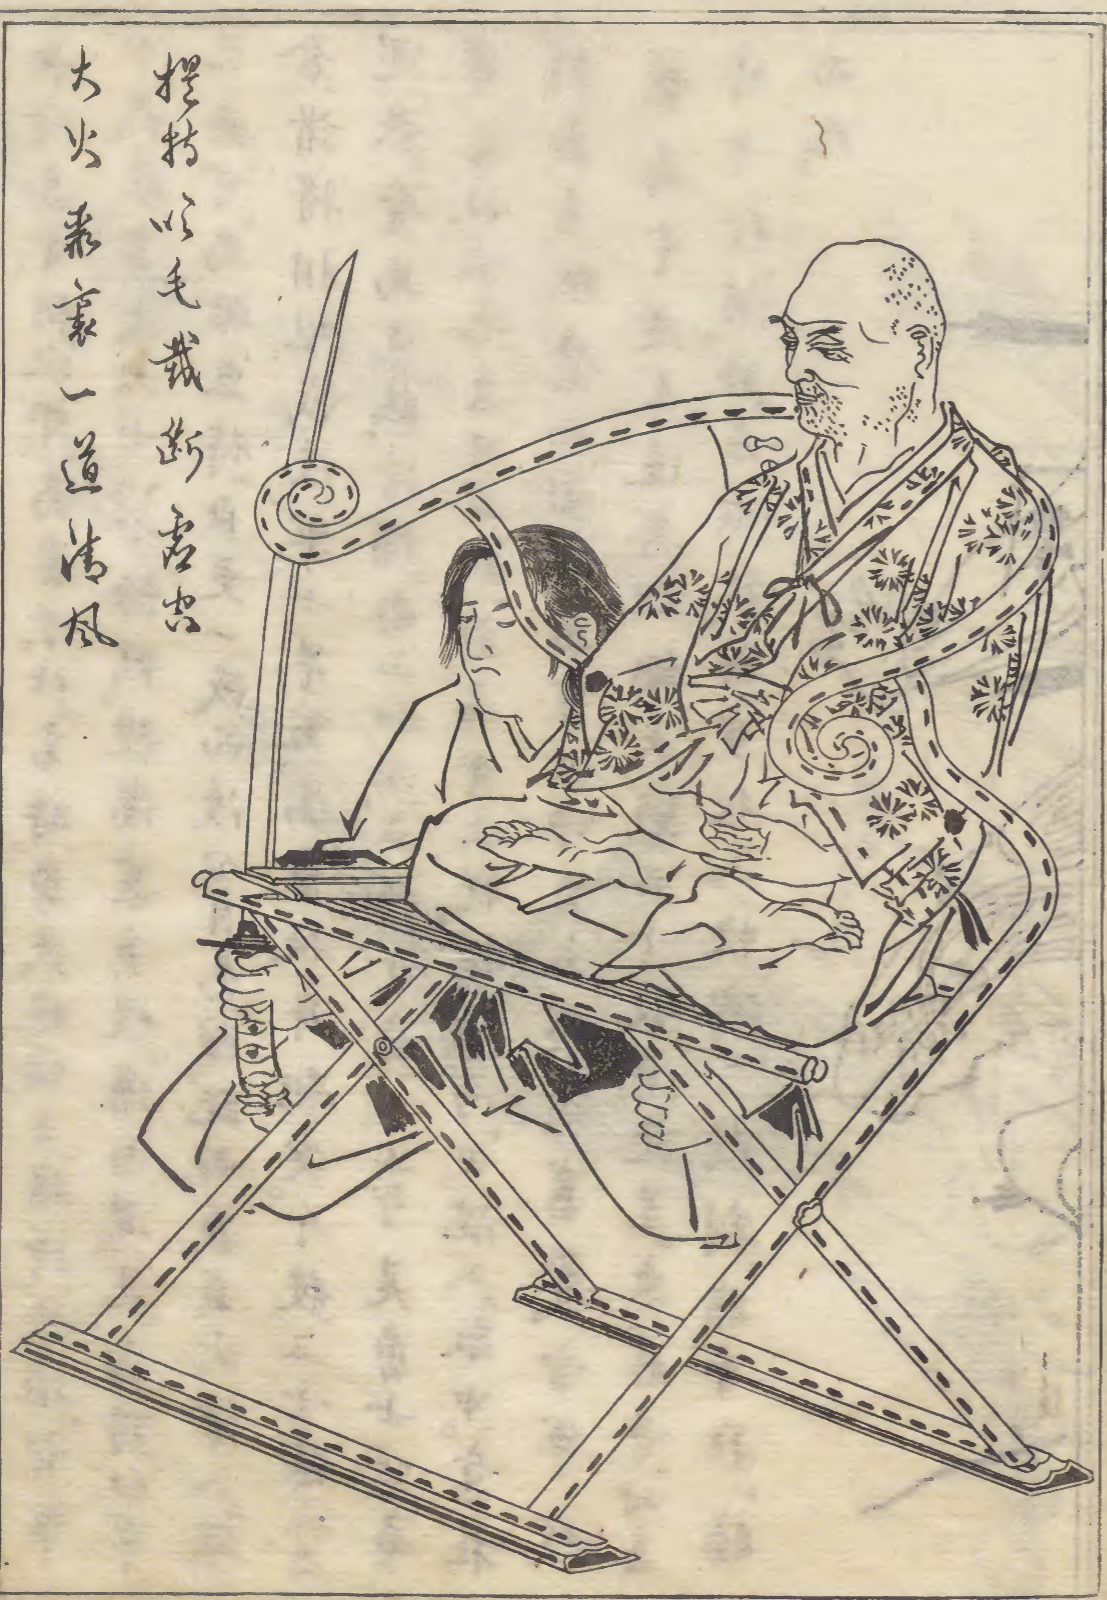 提持吹毛截断虚空
大火聚裏一道清風